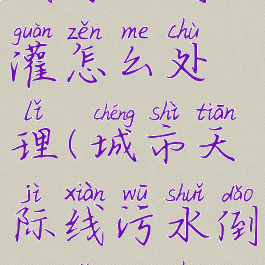 guàn zěn me chù
灌怎么处
lǐ chéng shì tiān
理(城市天
jì xiàn wū shuǐ dǎo
际线污水倒